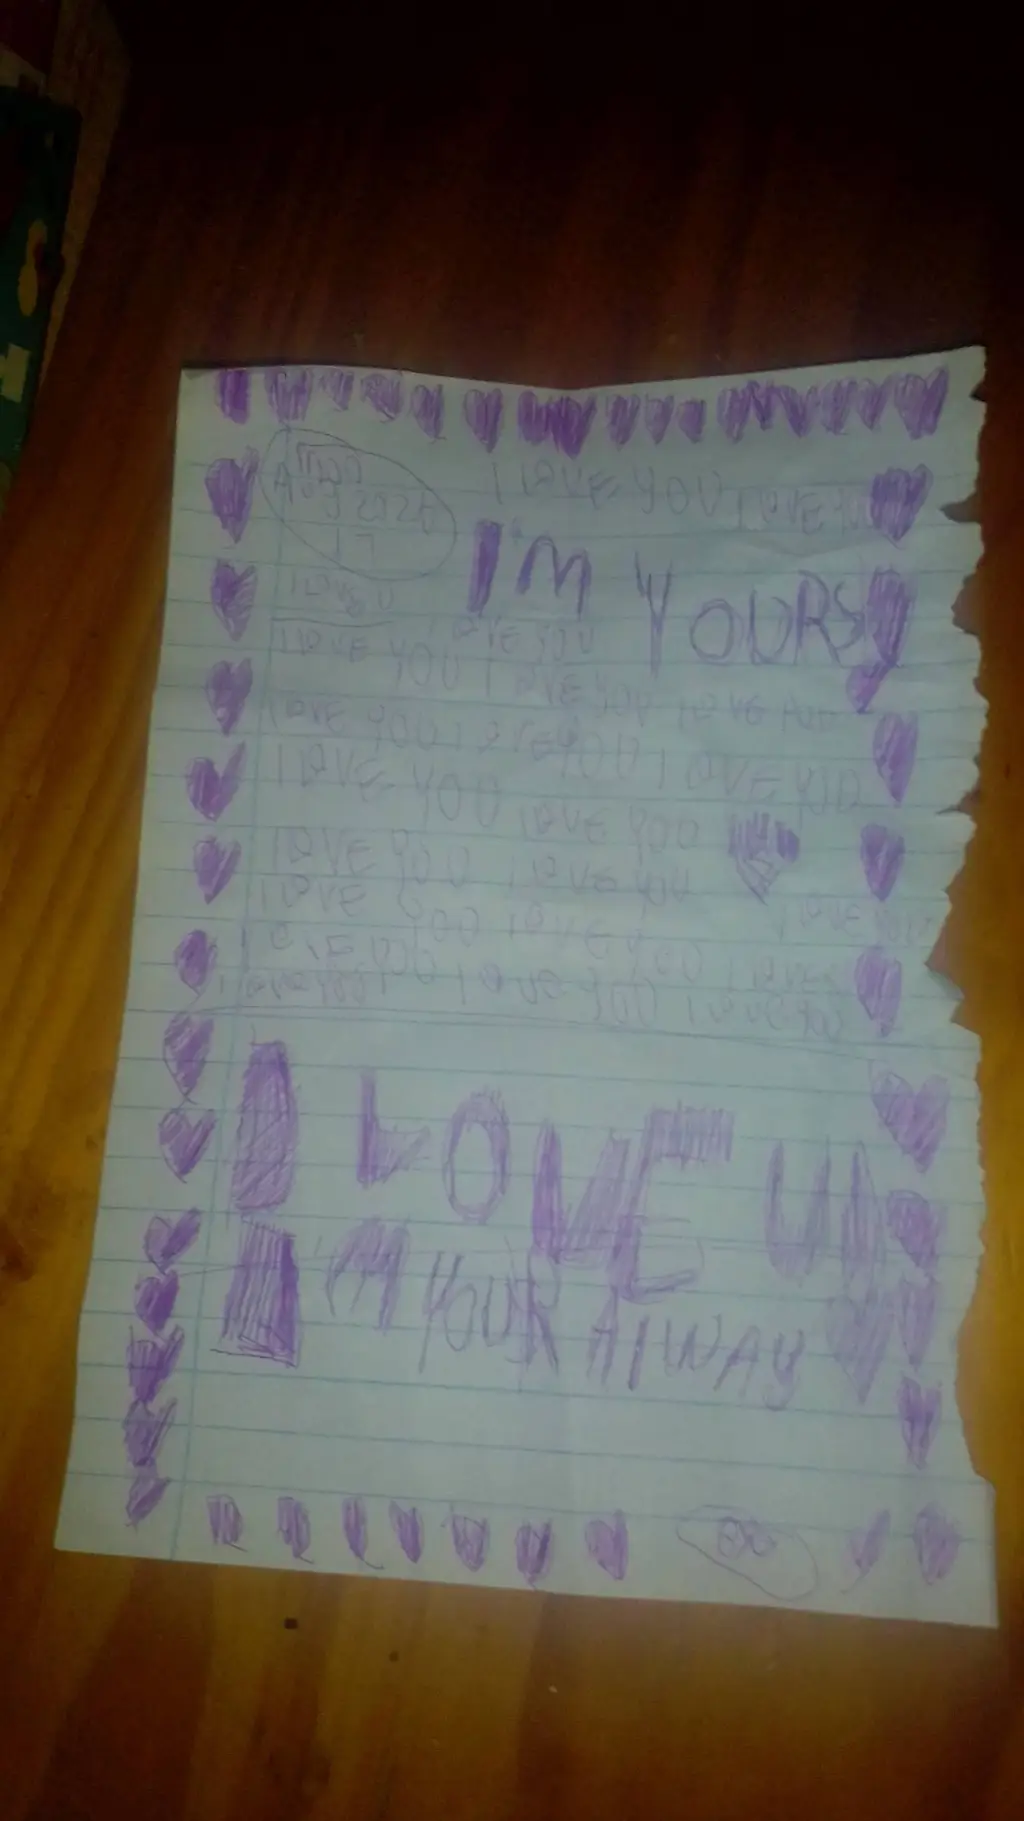 Aug 2025
17
I LOVE YOU I LOVE YOU
I'M YOURS
I LOVE U
I LOVE YOU
I LOVE YOU I LOVE YOU I LOVE YOU
I LOVE YOU I LOVE YOU I LOVE YOU
I LOVE YOU I LOVE YOU
I LOVE YOU I LOVE YOU
I LOVE YOU I LOVE YOU I LOVE YOU
I LOVE YOU I LOVE YOU I LOVE YOU
I LOVE U
I'M YOUR AlWAY